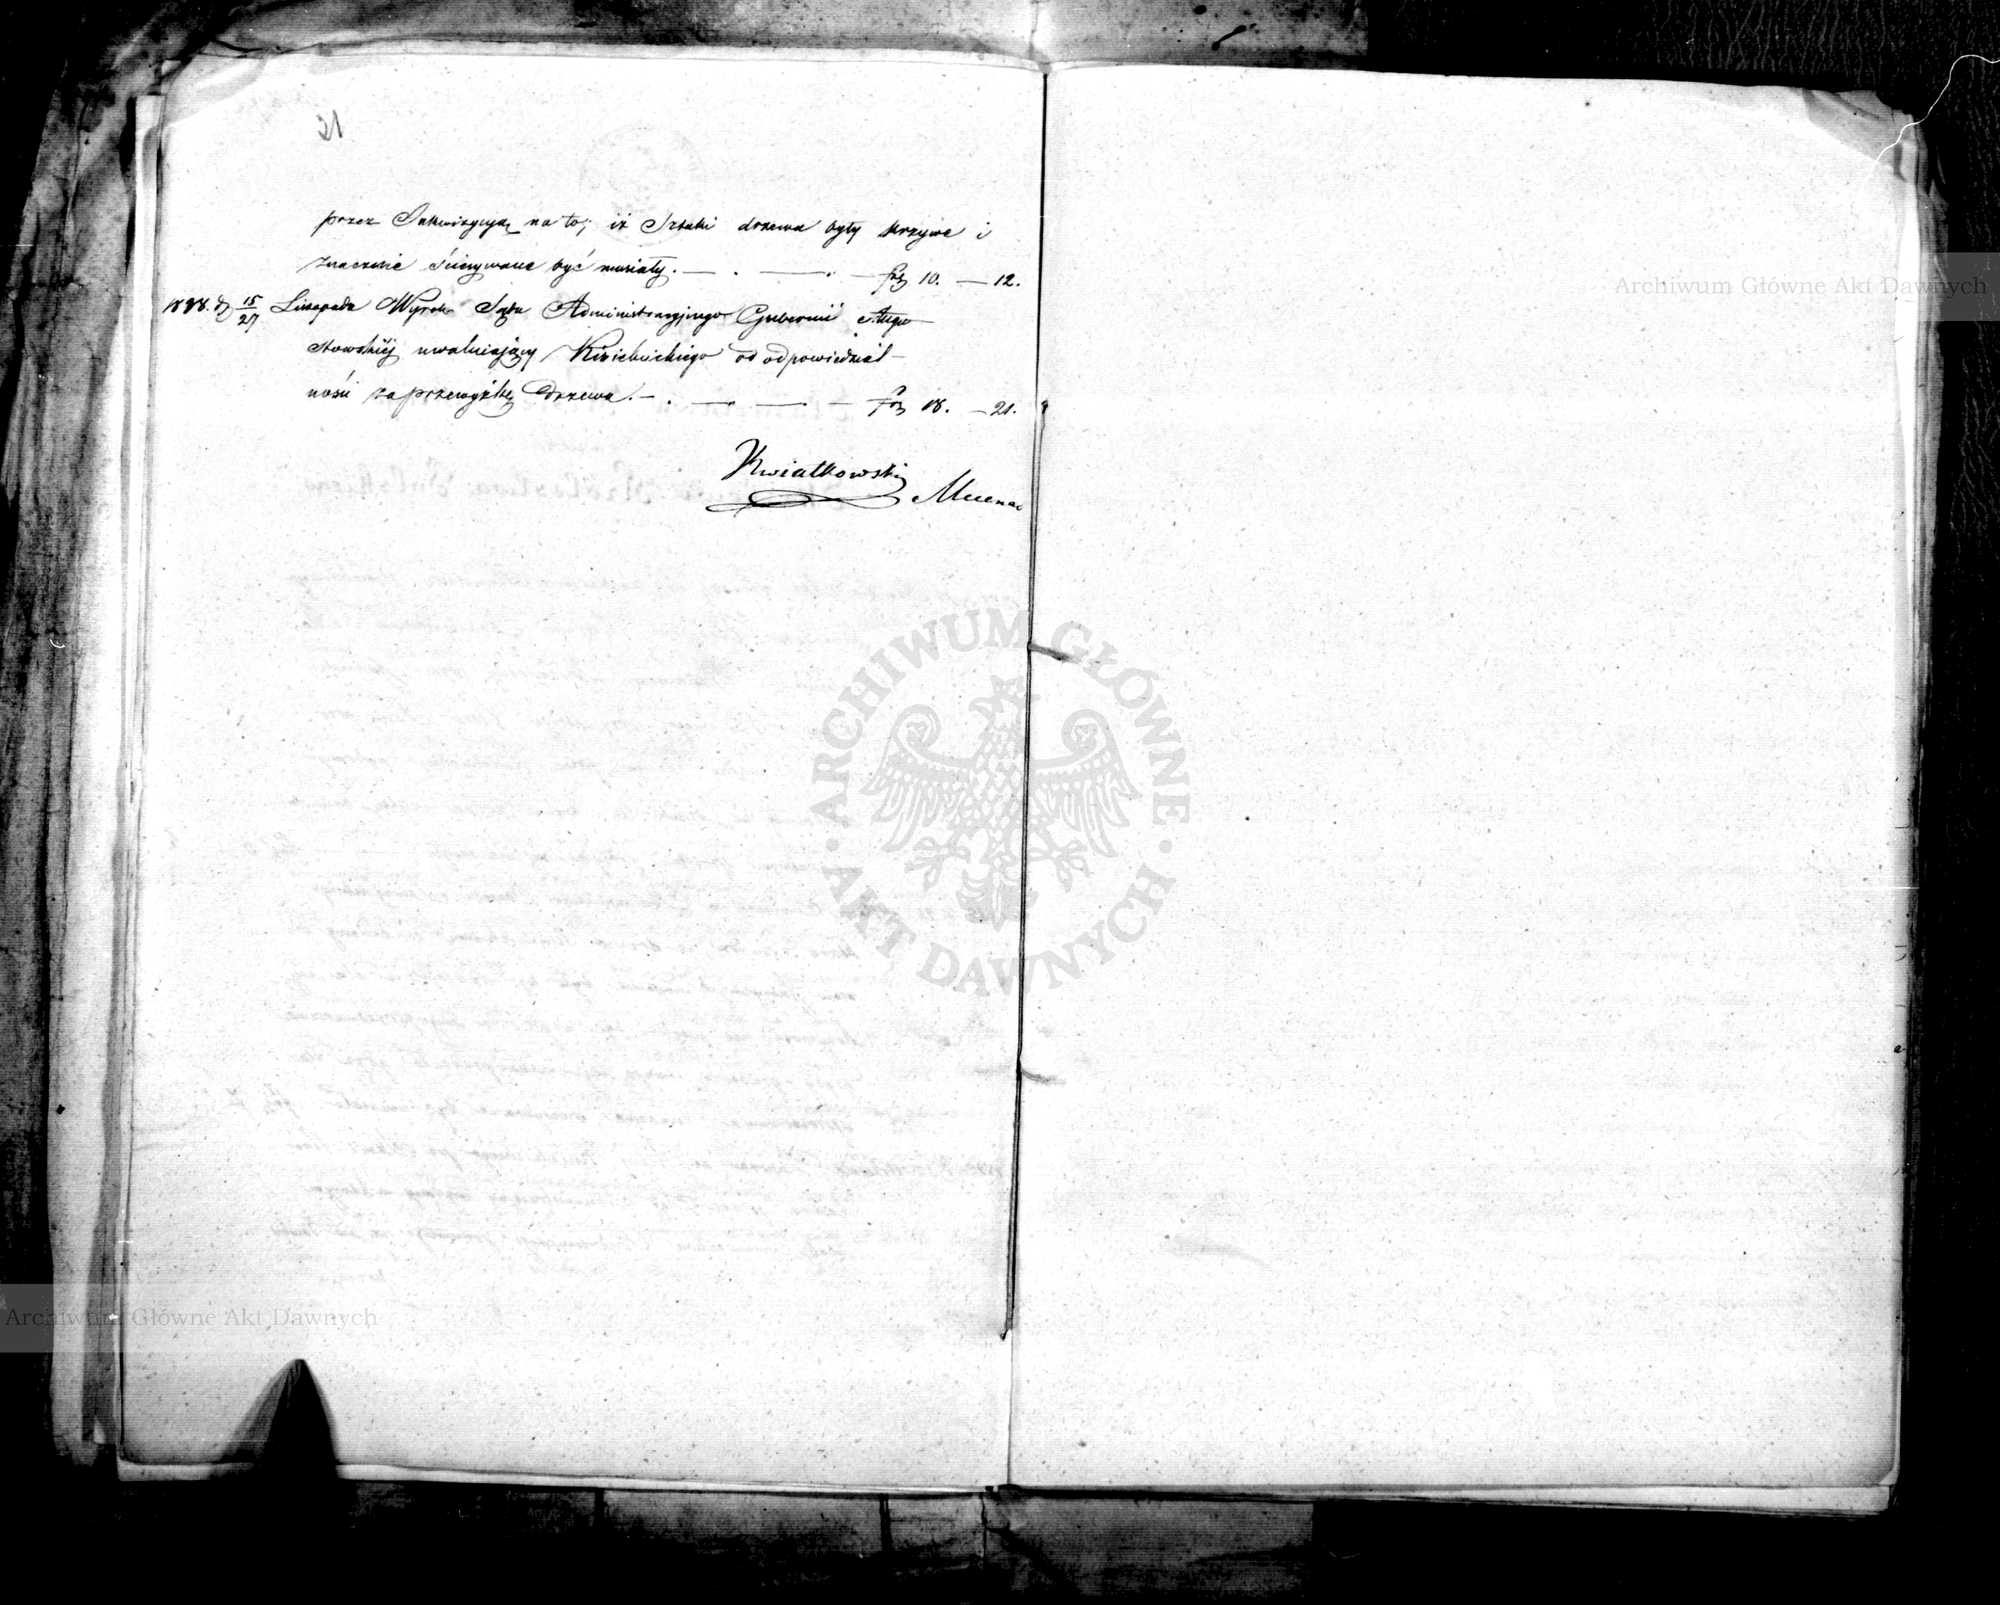 przez Inkwizycyą na to; iż Sztuki drzewa były krzywe i
znacznie ścinywane być musiały. — . — . — fol 10. — 12.
d 15/27 Listopada Wyrok Sądu Administracyjnego Gubernii Augu
stowskiéj uwalniający od odpowiedzial-
ności za przewyżkę Drzewa. — . — . — — fol 18. — 21.
Kwiatkowski
Mecenas
Archiwum Główne Akt Dawnych
ARCHIWUM GŁÓWNE · AKT DAWNYCH ·
Archiwum Główne Akt Dawnych